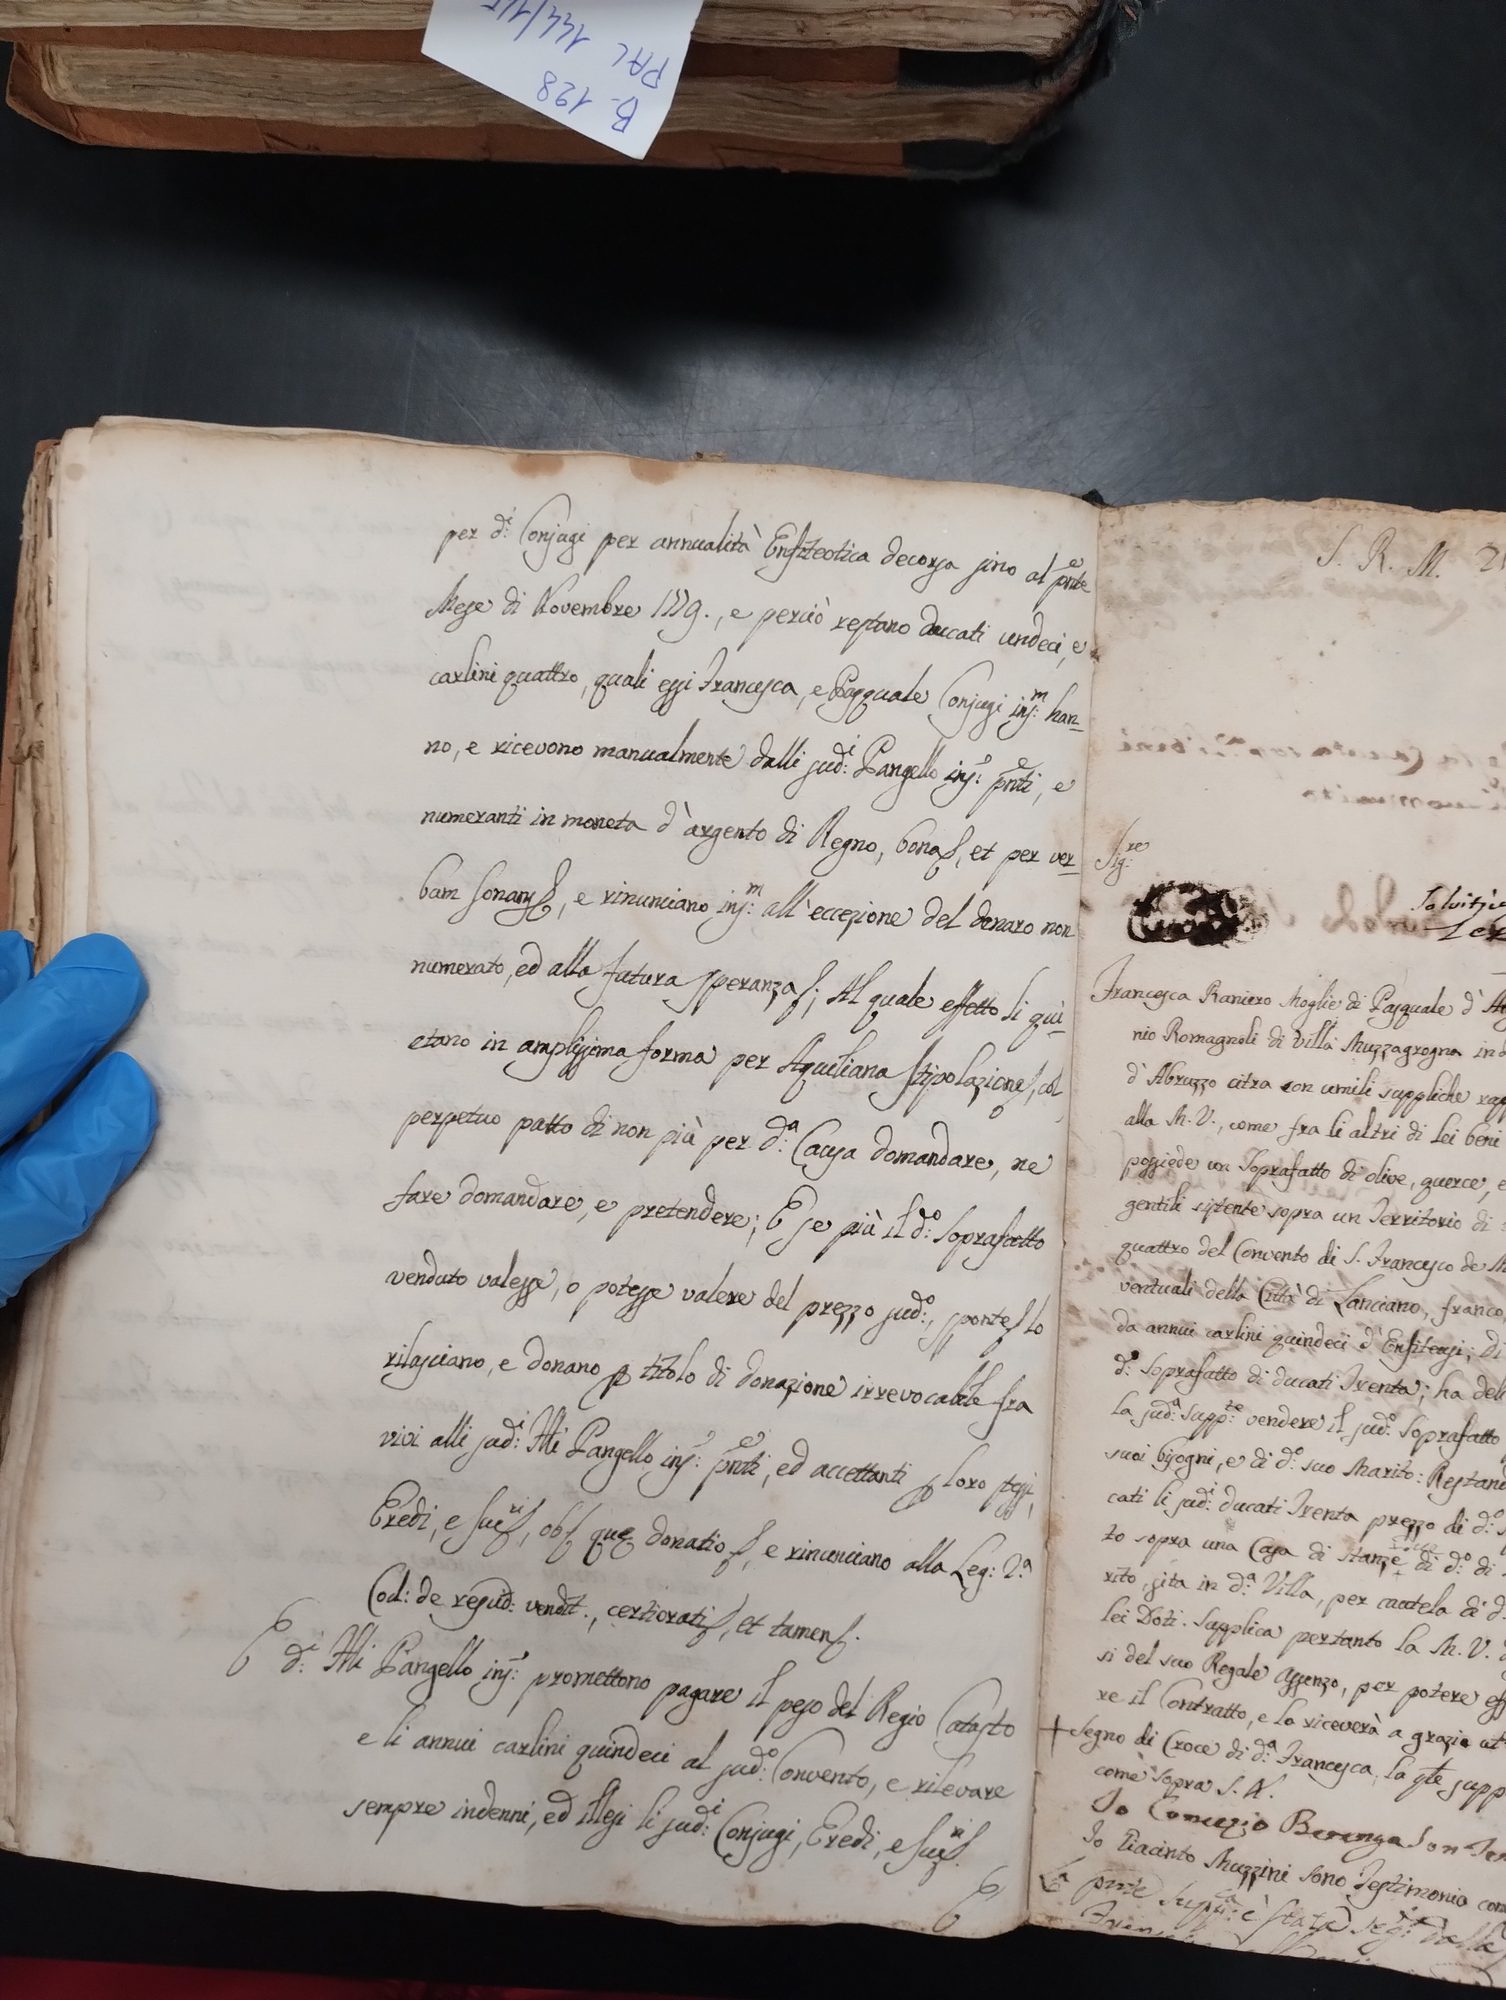 B. 128
PAL 144/145
per d.i Conjugi per annualità Enfiteotica decorsa sino al pnte
Mese di Novembre 1779., e perciò restano ducati undeci, e
carlini quattro, quali essi Francesca, e Pasquale Conjugi ins:m han-
no, e ricevono manualmente dalli sud:i Pangello ins:e pnti, e
numeranti in moneta d'argento di Regno, bonas, et per ver-
bam sonans, e rinunciano ins:m all'eccezione del denaro non
numerato, ed alla futura speranza; Al quale effetto li qui-
etano in amplissima forma per Aquiliana stipolazione, col
perpetuo patto di non più per d:a Causa domandare, ne
fare domandare, e pretendere; E se più il d:o soprafatto
venduto valesse, o potesse valere del prezzo sud:o, sponte lo
rilasciano, e donano p titolo di donazione irrevocabile fra
vivi alli sud:i Pangello ins:e pnti, ed accettanti p loro stessi,
Eredi, e suc:ri, ob que donatio, e rinunciano alla Leg: 2.a
Cod: de rescid: vendit., certiorati, et tamen.
E d:i Pangello ins:e promettono pagare il peso del Regio Catasto
e li annui carlini quindeci al sud:o Convento, e rilevare
sempre indenni, ed illesi li sud:i Conjugi, Eredi, e suc:ri.
E
S. R. M.
Sig:re
Francesca Raniero Moglie di Pasquale d'
nio Romagnoli di Villa Muzzagrogna in
d'Abruzzo citra con umili suppliche
alla M. V., come fra li altri di lei beni
possiede un soprafatto di olive, querce, e
gentili sistente sopra un Territorio di
quattro del Convento di S. Francesco de
ventuali della Città di Lanciano, franco,
da annui carlini quindeci d'Enfiteusi; Di
d:o soprafatto di ducati Trenta; ha
la sud:a supp:te vendere il sud:o soprafatto
suoi bisogni, e di d:o suo Marito:
cati li sud:i ducati Trenta prezzo di d:o
to sopra una Casa di stanze di d:o di
rito, sita in d:a Villa, per cautela di d.
lei Doti. Supplica pertanto la M. V.
si del suo Regale Assenzo, per potere
re il Contratto, e lo riceverà a grazia ut
+ Segno di Croce di d:a Francesca, la qle
come sopra S. N.
Io
Io Giacinto Muzzini sono Testimonio